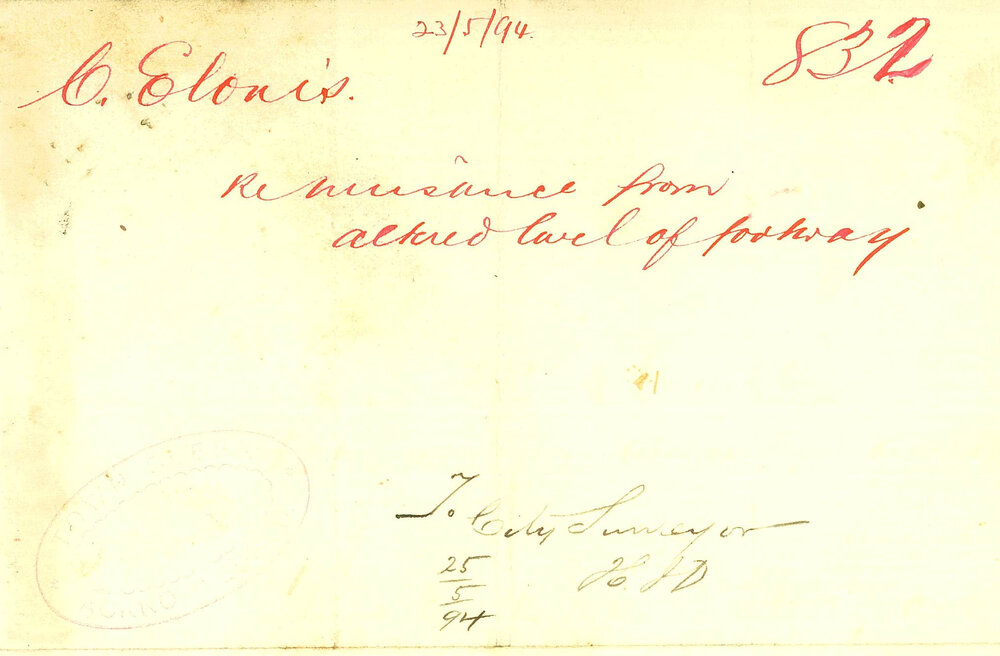 23/5/94.
832
C. Elonis.
Re nuisance from
altered level of footway
To City Surveyor
25/5/94
H. J D
TOWN CLERK'S